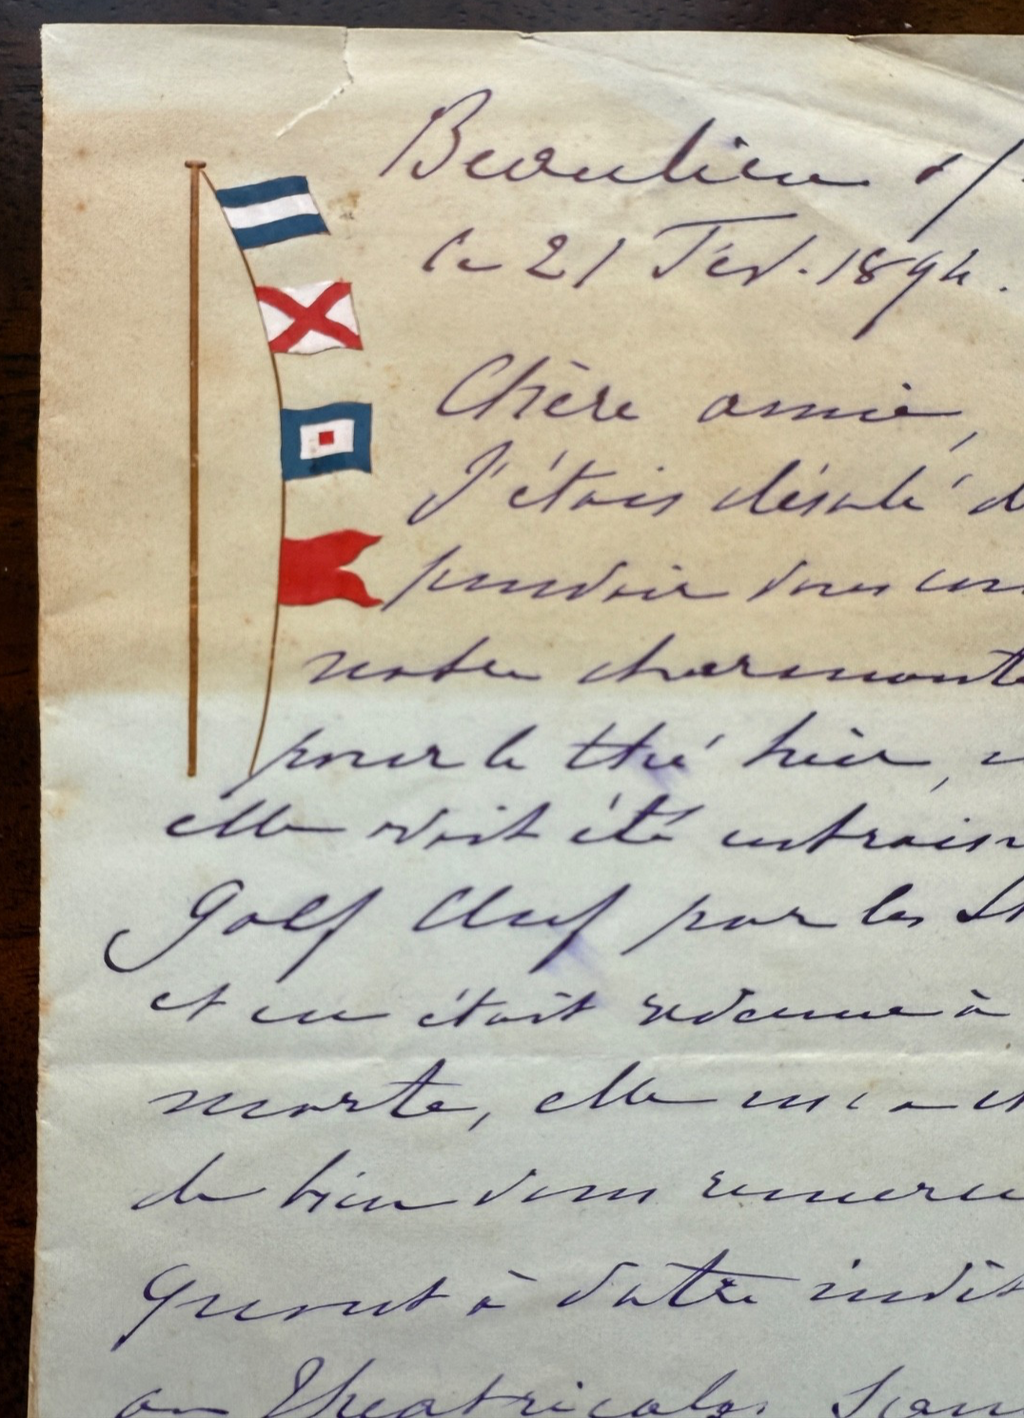 Beaulieu s/
le 21 Fév. 1894.
Chère amie,
J'étais désolé d
pouvoir vous
notre charmante
pour le thé hier,
elle avait été entrain
Golf Club par les
et en était revenue à
morte, elle
de bien vous remerci
Quant à votre invit
aux Theatricals